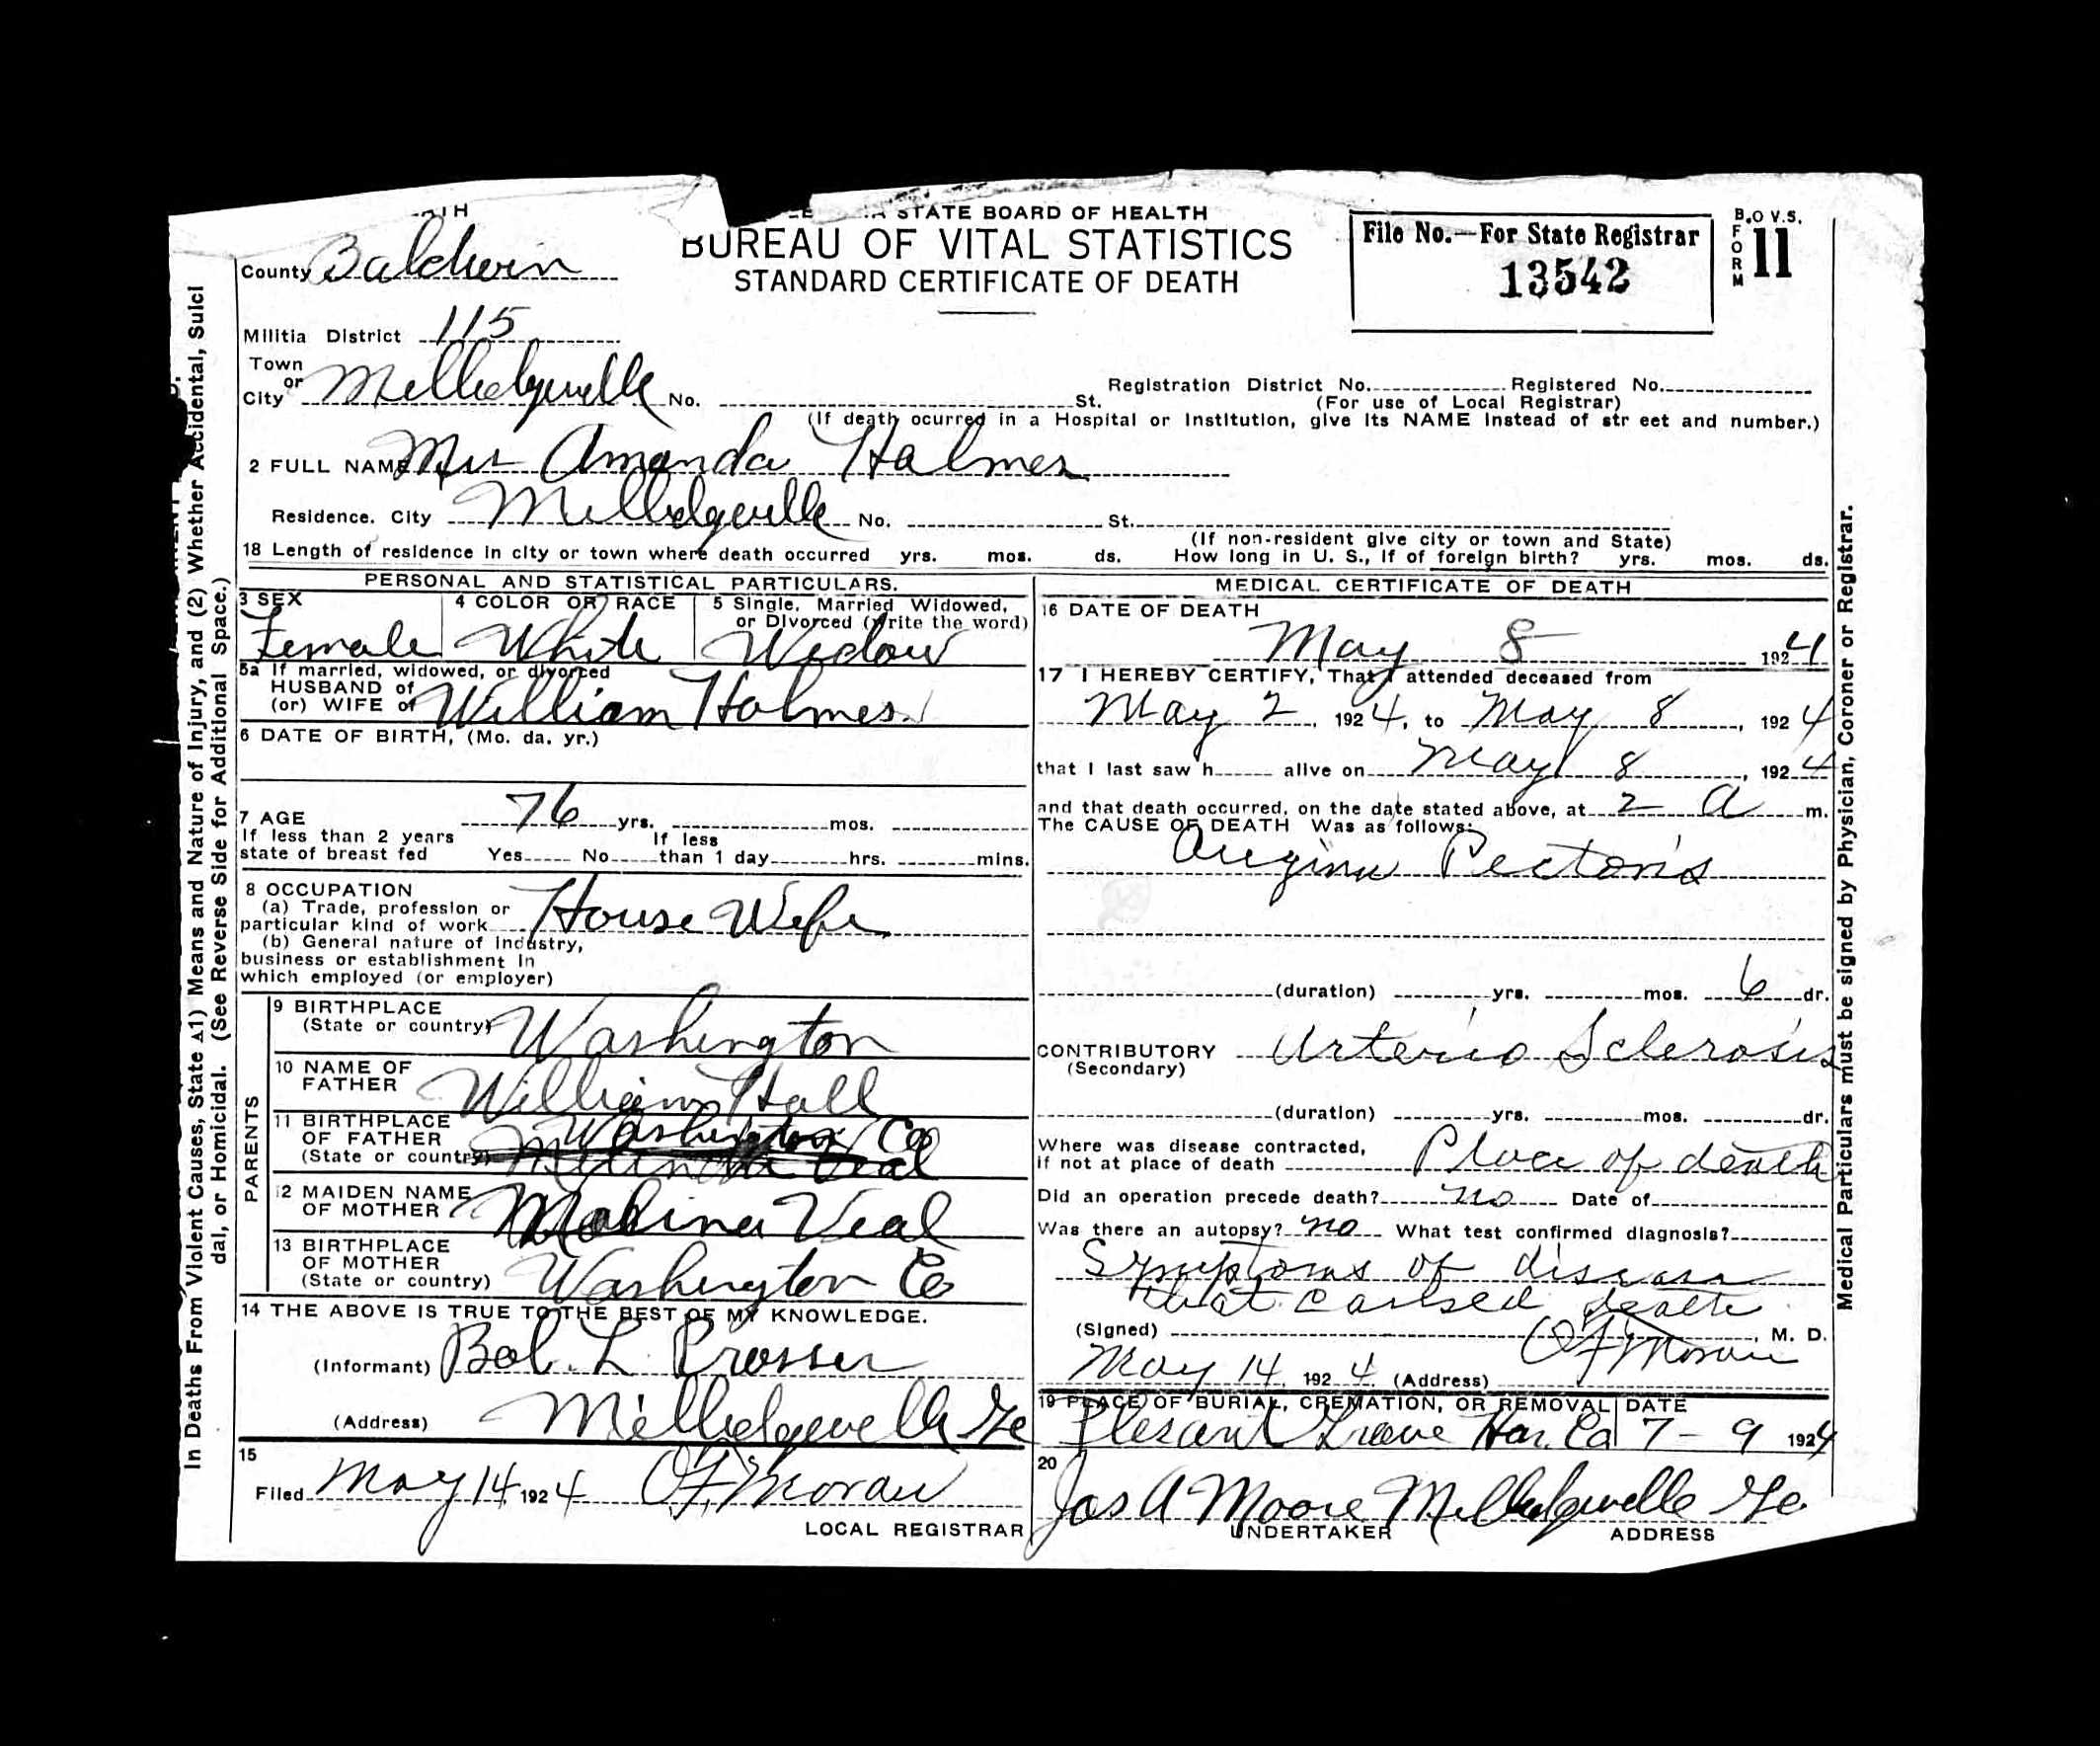 STATE BOARD OF HEALTH
BUREAU OF VITAL STATISTICS
STANDARD CERTIFICATE OF DEATH
File No.—For State Registrar
13542
B.O V.S.
FORM 11
County Baldwin
Militia District 115
Town or City Milledgeville No. St.
Registration District No. Registered No.
(For use of Local Registrar)
(If death ocurred in a Hospital or Institution, give its NAME instead of str eet and number.)
2 FULL NAME Mrs Amanda Holmes
Residence. City Milledgeville No. St.
(If non-resident give city or town and State)
18 Length of residence in city or town where death occurred yrs. mos. ds. How long in U. S., if of foreign birth? yrs. mos. ds.
PERSONAL AND STATISTICAL PARTICULARS.
3 SEX
Female
4 COLOR OR RACE
White
5 Single, Married Widowed,
or Divorced (write the word)
Widow
5a If married, widowed, or divorced
HUSBAND of
(or) WIFE of William Holmes
6 DATE OF BIRTH, (Mo. da. yr.)
7 AGE 76 yrs. mos.
If less than 2 years
state of breast fed Yes No
If less
than 1 day hrs. mins.
8 OCCUPATION
(a) Trade, profession or
particular kind of work House Wife
(b) General nature of industry,
business or establishment in
which employed (or employer)
PARENTS
9 BIRTHPLACE
(State or country) Washington
10 NAME OF
FATHER William Hall
11 BIRTHPLACE
OF FATHER
(State or country) Washington Co
Veal
12 MAIDEN NAME
OF MOTHER Malina Veal
13 BIRTHPLACE
OF MOTHER
(State or country) Washington Co
14 THE ABOVE IS TRUE TO THE BEST OF MY KNOWLEDGE.
(Informant) Bob L Prosser
(Address) Milledgeville Ga
15
Filed May 14 1924 O F Moran
LOCAL REGISTRAR
MEDICAL CERTIFICATE OF DEATH
16 DATE OF DEATH
May 8 1924
17 I HEREBY CERTIFY, That I attended deceased from
May 2, 1924, to May 8, 1924
that I last saw h alive on May 8, 1924
and that death occurred, on the date stated above, at 2 A m.
The CAUSE OF DEATH Was as follows:
Angina Pectoris
(duration) yrs. mos. 6 dr.
CONTRIBUTORY Arterio Sclerosis
(Secondary)
(duration) yrs. mos. dr.
Where was disease contracted,
if not at place of death Place of death
Did an operation precede death? no Date of
Was there an autopsy? no What test confirmed diagnosis?
Symptoms of disease
that caused death
(Signed) O F Moran, M. D.
May 14, 1924 (Address)
19 PLACE OF BURIAL, CREMATION, OR REMOVAL DATE
Plesant Grove Han. Co 7-9 1924
20
Jas A Moore Milledgeville Ga
UNDERTAKER ADDRESS
In Deaths From Violent Causes, State (1) Means and Nature of Injury, and (2) Whether Accidental, Suici
dal, or Homicidal. (See Reverse Side for Additional Space.)
Medical Particulars must be signed by Physician, Coroner or Registrar.